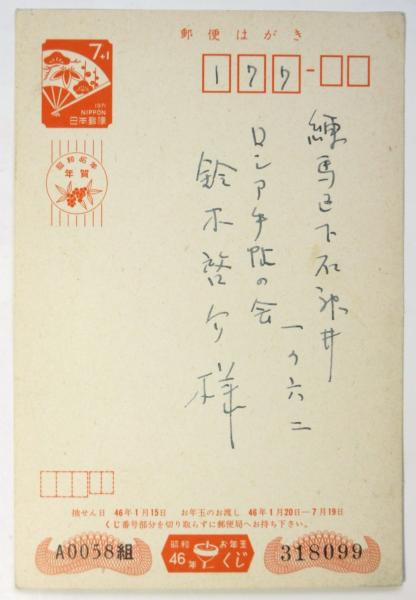 郵便はがき
7+1
1971
NIPPON
日本郵便
昭和46年
年賀
177
練馬区下石神井
一ノ六二
ロシア手帖の会
鈴木啓介様
抽せん日 46年1月15日 お年玉のお渡し 46年1月20日―7月19日
くじ番号部分を切り取らずに郵便局へお持ち下さい。
A0058組
昭和46年
お年玉くじ
318099